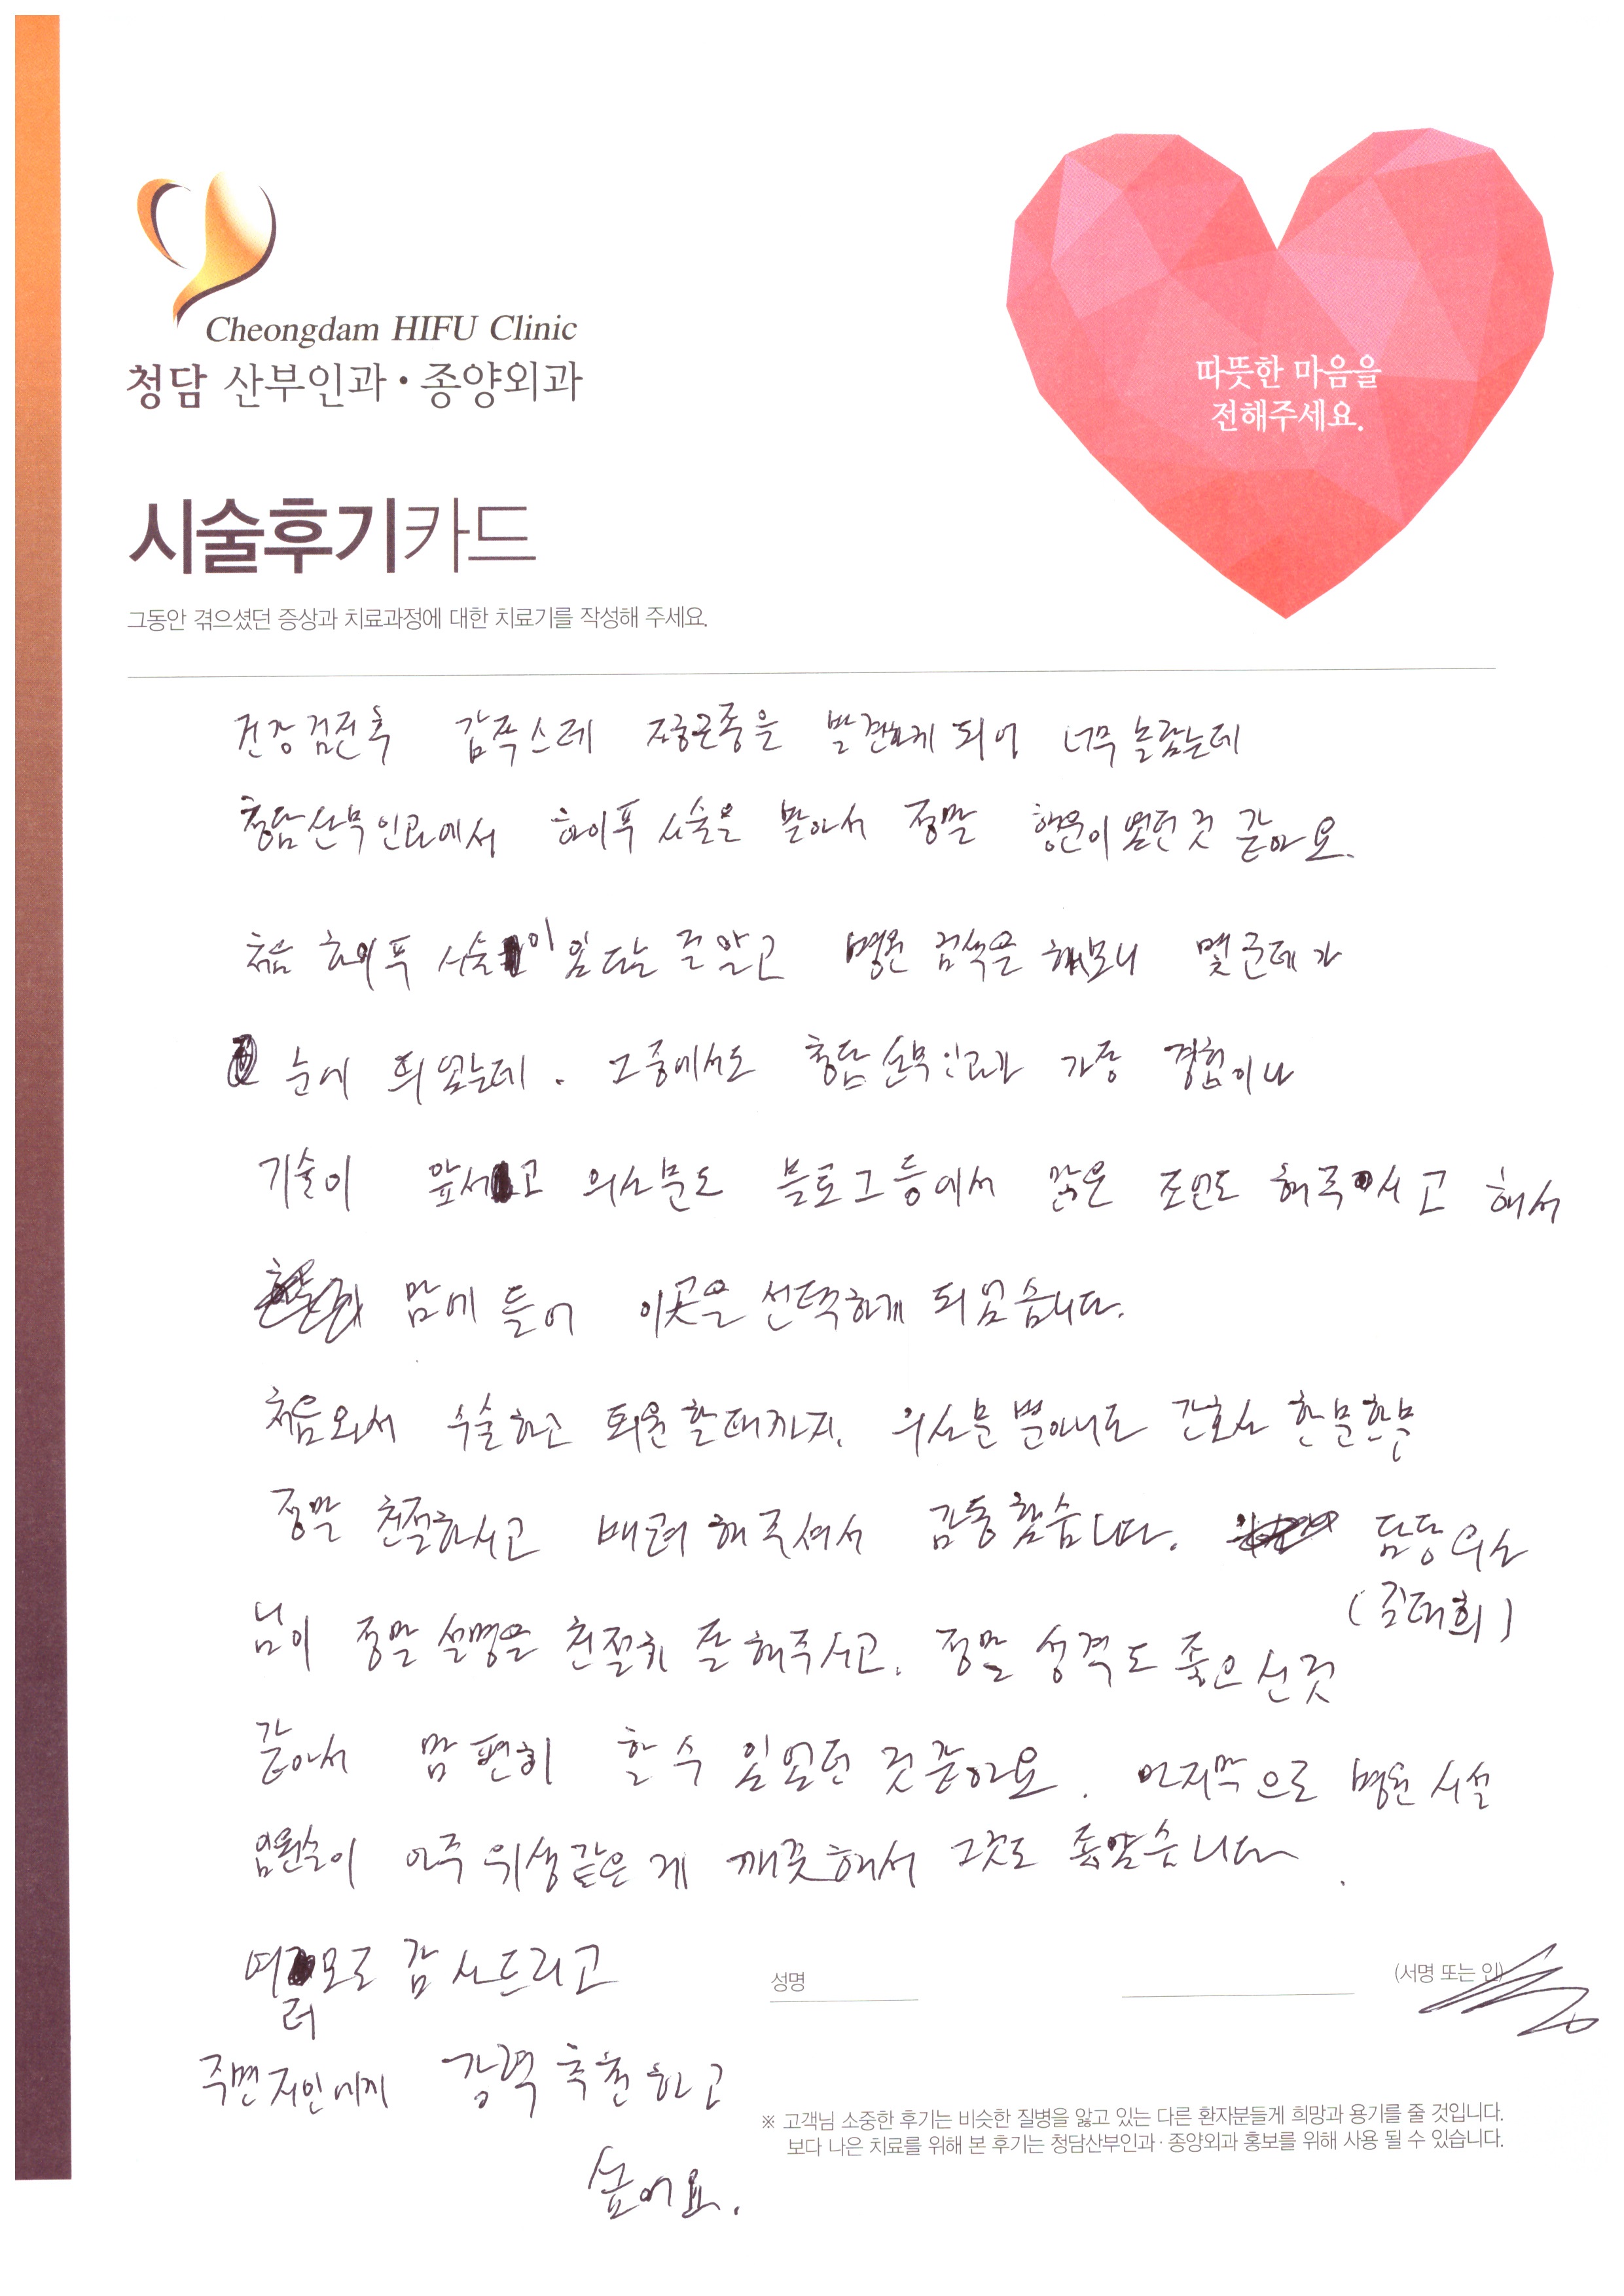 Cheongdam HIFU Clinic
청담 산부인과·종양외과
따뜻한 마음을
전해주세요.
시술후기카드
그동안 겪으셨던 증상과 치료과정에 대한 치료기를 작성해 주세요.
건강검진후 갑작스레 자궁근종을 발견하게 되어 너무 놀랐는데
청담산부인과에서 하이푸 시술을 받아서 정말 행운이였던것 같아요.
처음 하이푸 시술이 있다는 걸 알고 병원 검색을 해보니 몇군데가
눈에 띄었는데. 그중에서도 청담산부인과가 가장 경험이나
기술이 앞서고 의사분도 블로그등에서 많은 조언도 해주시고 해서
맘에 들어 이곳을 선택하게 되었습니다.
처음와서 수술하고 퇴원할때까지. 의사분뿐아니라 간호사 한분한분
정말 친절하시고 배려해주셔서 감동했습니다. 담당의사
(김태희)
님이 정말 설명을 친절히 잘해주시고. 정말 성격도 좋으신것
같아서 맘 편히 할수 있었던 것같아요. 마지막으로 병원시설
입원실이 아주 위생같은 게 깨끗해서 그것도 좋았습니다.
여러모로 감사드리고
주변 지인에게 강력 추천하고
싶어요.
성명
(서명 또는 인)
※ 고객님 소중한 후기는 비슷한 질병을 앓고 있는 다른 환자분들게 희망과 용기를 줄 것입니다.
보다 나은 치료를 위해 본 후기는 청담산부인과·종양외과 홍보를 위해 사용 될 수 있습니다.